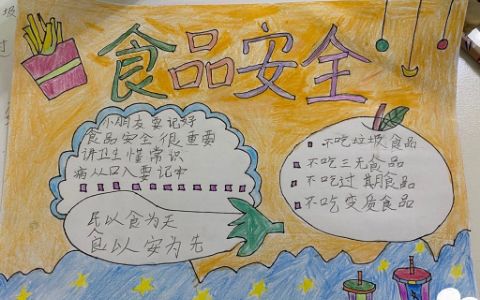 食品安全
小朋友要记好
食品安全很重要
讲卫生懂常识
病从口入要记中
民以食为天
食以安为先
不吃垃圾食品
不吃三无食品
不吃过期食品
不吃变质食品